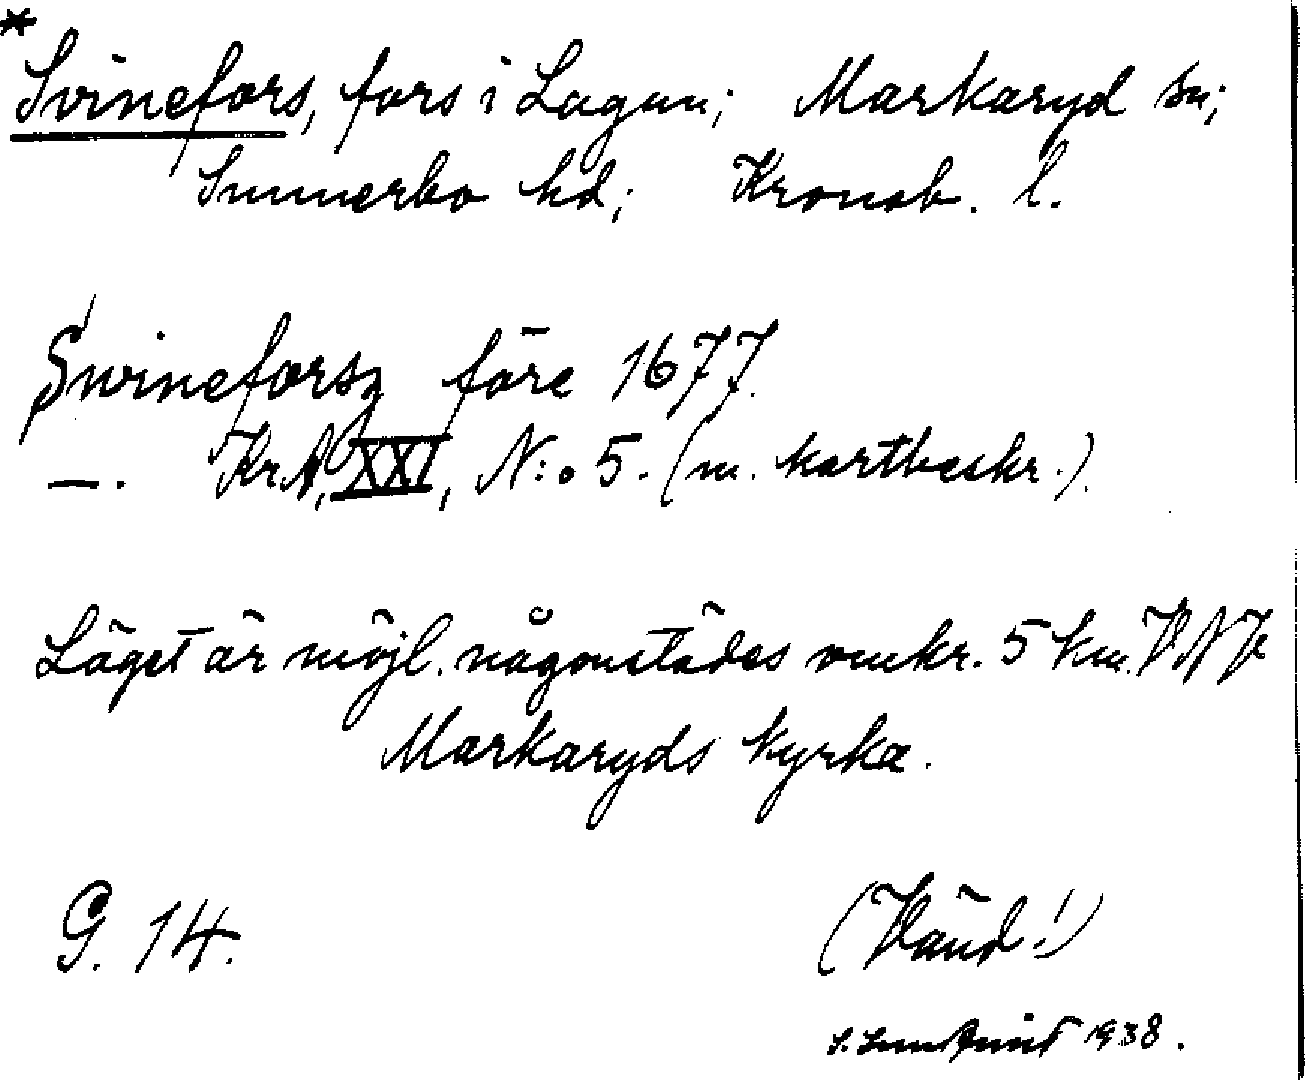 * Svinefors, fors i Lagan; Markaryd sn;
Sunnerbo hd; Kronob. l.
Swineforsz före 1677.
—. KrA, XXI, N:o 5. (m. kartbeskr.).
Läget är möjl. någonstädes omkr. 5 km. VNV
Markaryds kyrka.
G. 14.
(Vänd!)
1938.